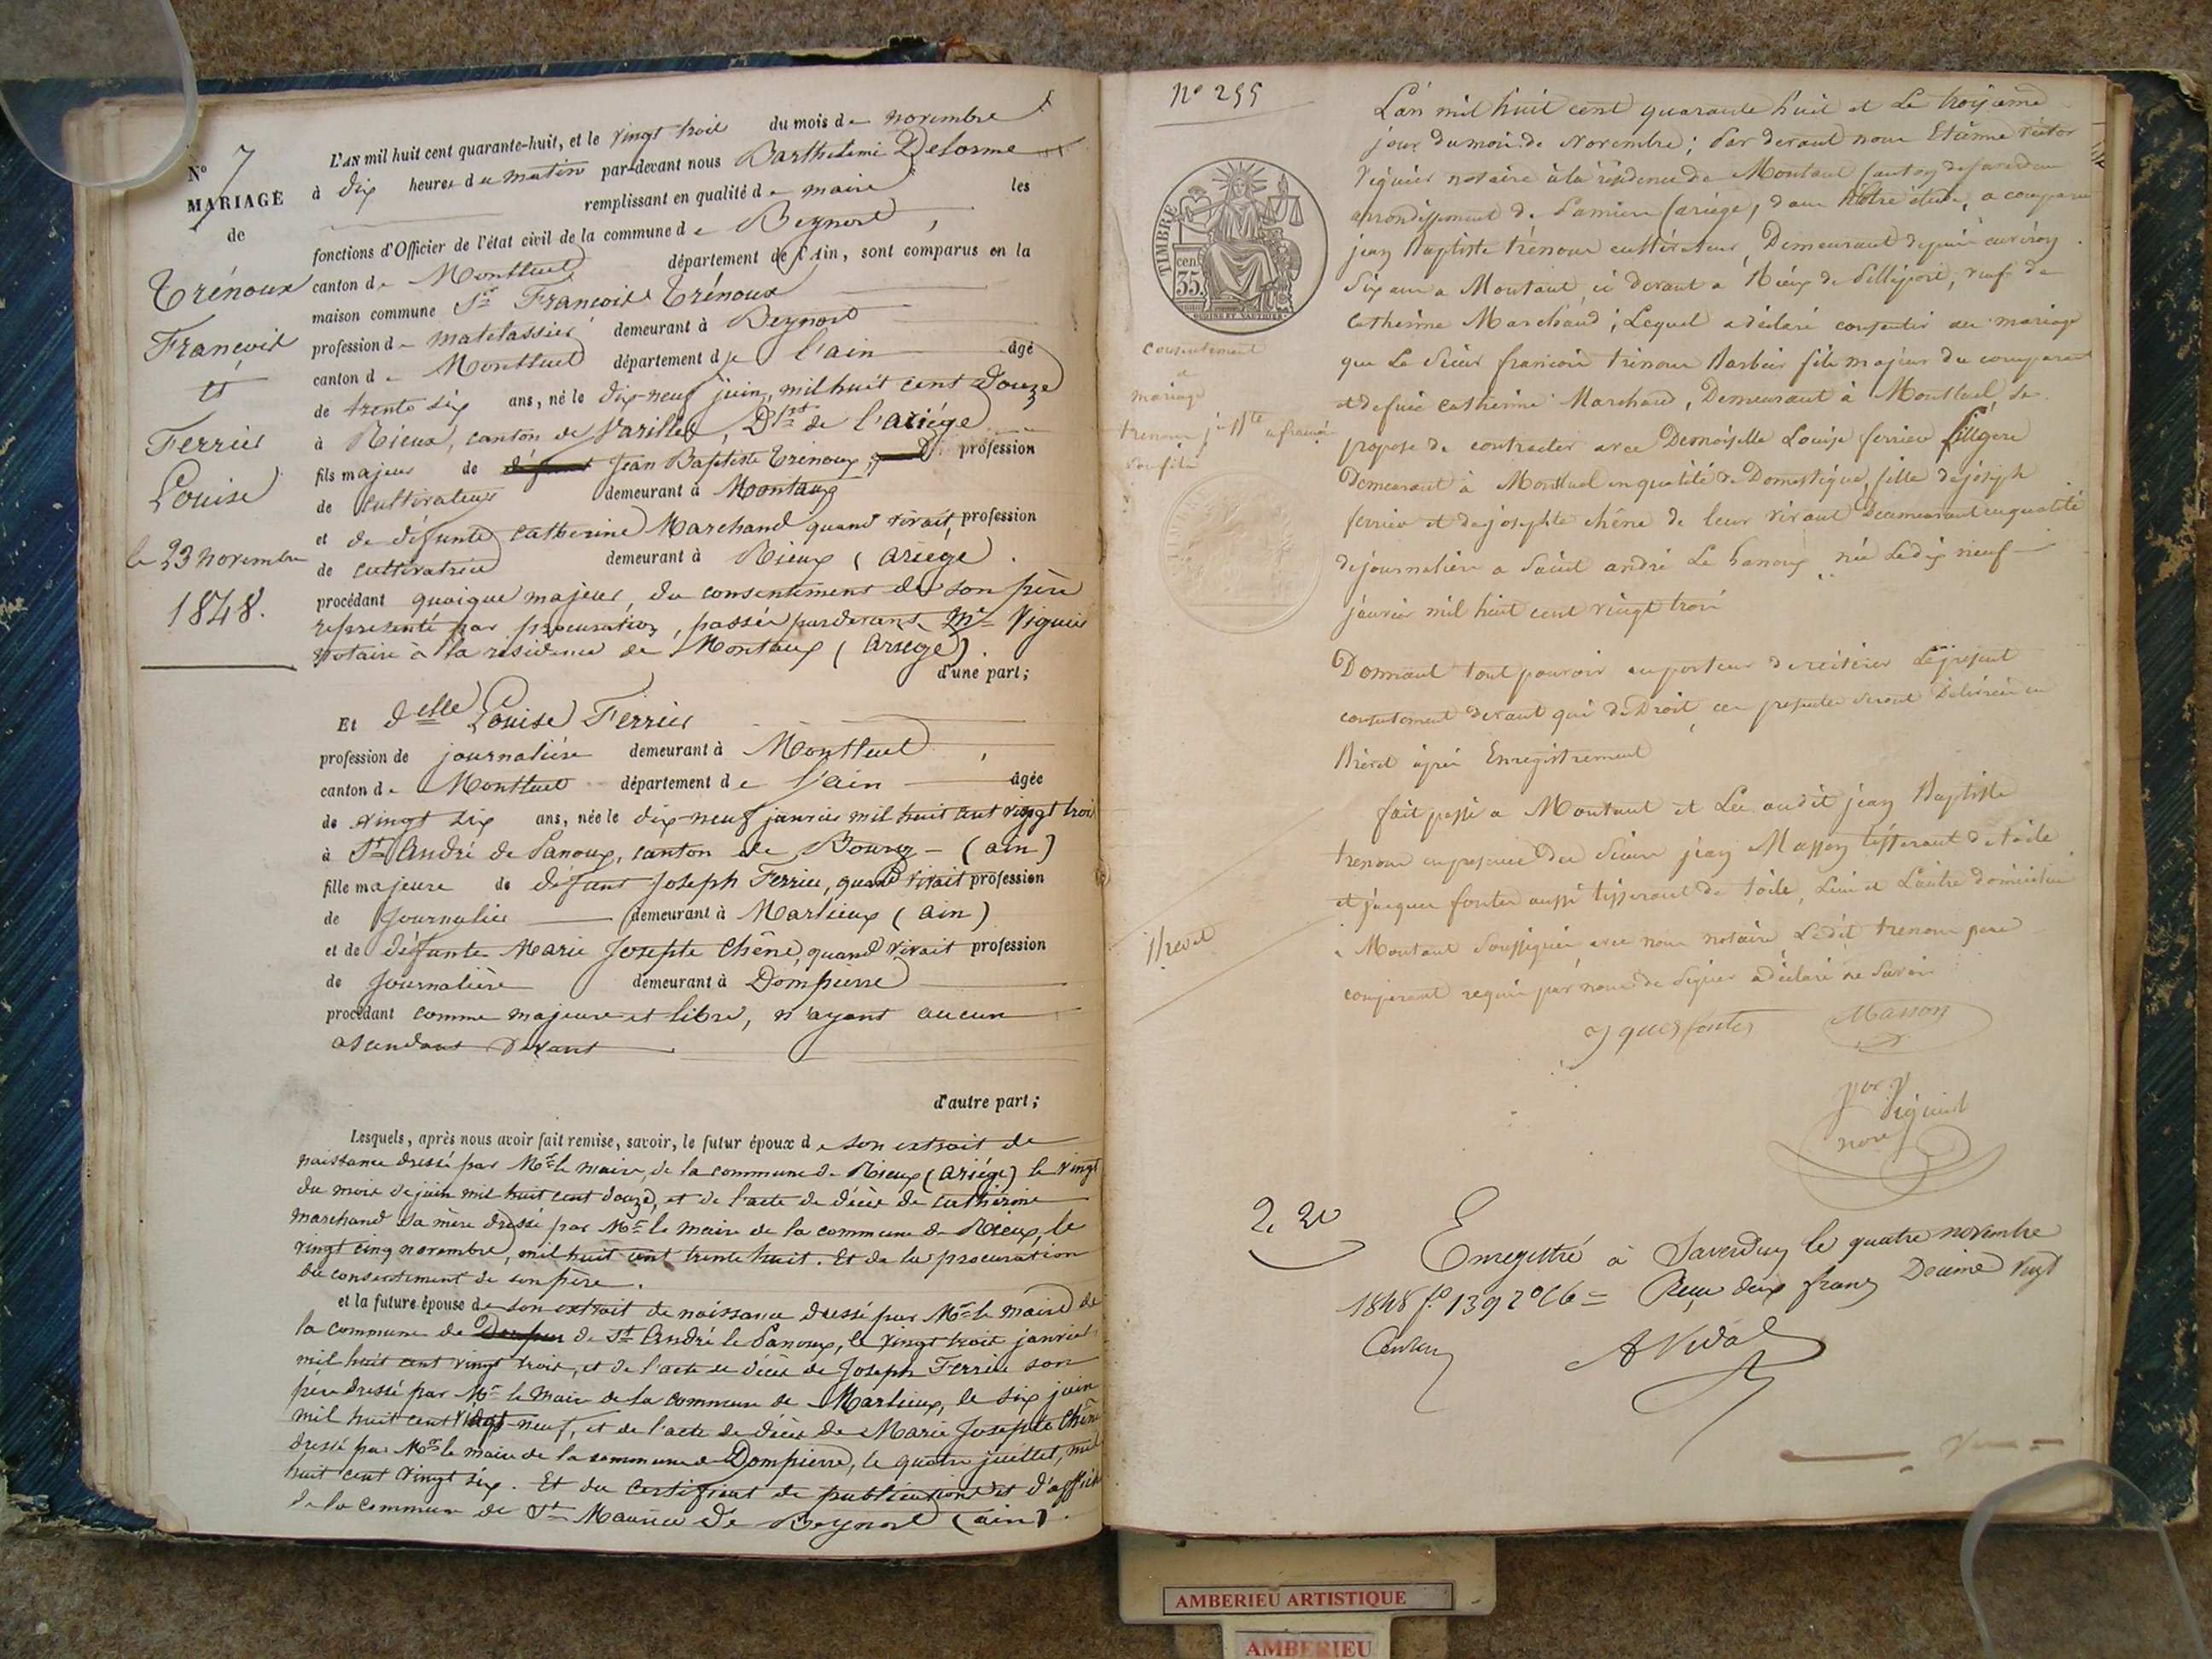 N° 7
MARIAGE
de
Trénoux
François
et
Ferrier
Louise
le 23 novembre
1848.
L'AN mil huit cent quarante-huit, et le vingt trois du mois de novembre
à dix heures du matin par-devant nous Barthelemi Delorme
remplissant en qualité de maire les
fonctions d'Officier de l'état civil de la commune de Beynost,
canton de Montluel département de l'Ain, sont comparus en la
maison commune Sr François Trénoux
profession de matelassier demeurant à Beynost
canton de Montluel département de l'ain âgé
de trente six ans, né le dix-neuf juin, mil huit cent douze
à Rieux, canton de Varilles, Dpt de l'ariége
fils majeur de Jean Baptiste Trénoux, profession
de cultivateur demeurant à Montaux
et de défunte Catherine Marchand quand vivait, profession
de cultivatrice demeurant à Rieux (ariege).
procédant quoique majeur, du consentement de son père
representé par procuration, passée pardevant Me Viguier
Notaire à la résidence de Montaux (ariege).
d'une part;
Et delle Louise Ferrier
profession de journalière demeurant à Montluel,
canton de Montluel département de l'ain âgée
de vingt six ans, née le dix-neuf janvier mil huit cent vingt trois
à St André de Panoux, canton de Bourg - (ain)
fille majeure de défunt Joseph Ferrier, quand vivait profession
de Journalier demeurant à Marlieux (ain)
et de défunte Marie Josepte Chêne, quand vivait profession
de Journalière demeurant à Dompierre
procédant comme majeure et libre, n'ayant aucun
ascendant vivant
d'autre part;
Lesquels, après nous avoir fait remise, savoir, le futur époux de son extrait de
naissance dressé par Mr le maire, de la commune de Rieux (Ariége) le vingt
du mois de juin mil huit cent douze, et de l'acte de décès de catherine
marchand sa mère dressé par Mr le maire de la commune de Rieux, le
vingt cinq novembre, mil huit cent trente huit. Et de la procuration
du consentement de son père.
et la future épouse de son extrait de naissance dressé par Mr le maire de
la commune de de St André le Panoux, le vingt trois janvier
mil huit cent vingt trois, et de l'acte de décès de Joseph Ferrier son
père dressé par Mr le maire de la commune de Marlieux, le six juin
mil huit cent vingt-neuf, et de l'acte de décès de Marie Josepte Chêne
dressé par Mr le maire de la commune de Dompierre, le quatre juillet, mil
huit cent vingt six. Et du certificat de publications et d'affiches
de la commune de St Maurice de Beynost (ain).
N° 255
TIMBRE
35 cen
consentement
a
mariage
trenoux
son fils
Brevet
L'an mil huit cent quarante huit et Le troisieme
jour du mois de Novembre; Par devant nous Etienne Victor
Viguier notaire à la residence de Montaut canton de Saverdun
arrondissement de Pamiers (ariege), dans notre étude, a comparu
jean Baptiste trénoux cultivateur, Demeurant depuis environ
Six ans a Montaut, ci devant a Rieux de Pelleport, veuf de
Catherine Marchand; Lequel a déclaré consentir au mariage
que Le Sieur francois trenoux fils majeur du comparant
et defuite catherine Marchand, Demeurant à Montluel, se
propose de contracter avec Demoiselle Louise ferrier
Demeurant à Montluel en qualité de Domestique, fille de joseph
ferrier et de josephte chêne de leur vivant Demeurant en qualité
de journalière a Saint andré Le Panoux, née Le dix neuf
janvier mil huit cent vingt trois
Donnant tout pouvoir au porteur de réitérer Le present
consentement devant qui de Droit, ces presentes seront Délivrées en
Brévet après Enregistrement
fait passé a Montaut et Lu audit jean Baptiste
trenoux en presence des Sieurs jean Masson tisserant de toile
et jacques fontes aussi tisserant de toile, L'un et L'autre domiciliés
a Montaut Soussignés avec nous notaire, Ledit trenoux pere
comparant requis par nous de signer a déclaré ne Savoir
jques fontes Masson
Viguier
nore
2. 20
Enregistré à Saverdun le quatre novembre
1848 fo 139 Reçu deux francs Decime vingt
Centimes
AVidal
AMBERIEU ARTISTIQUE
AMBERIEU